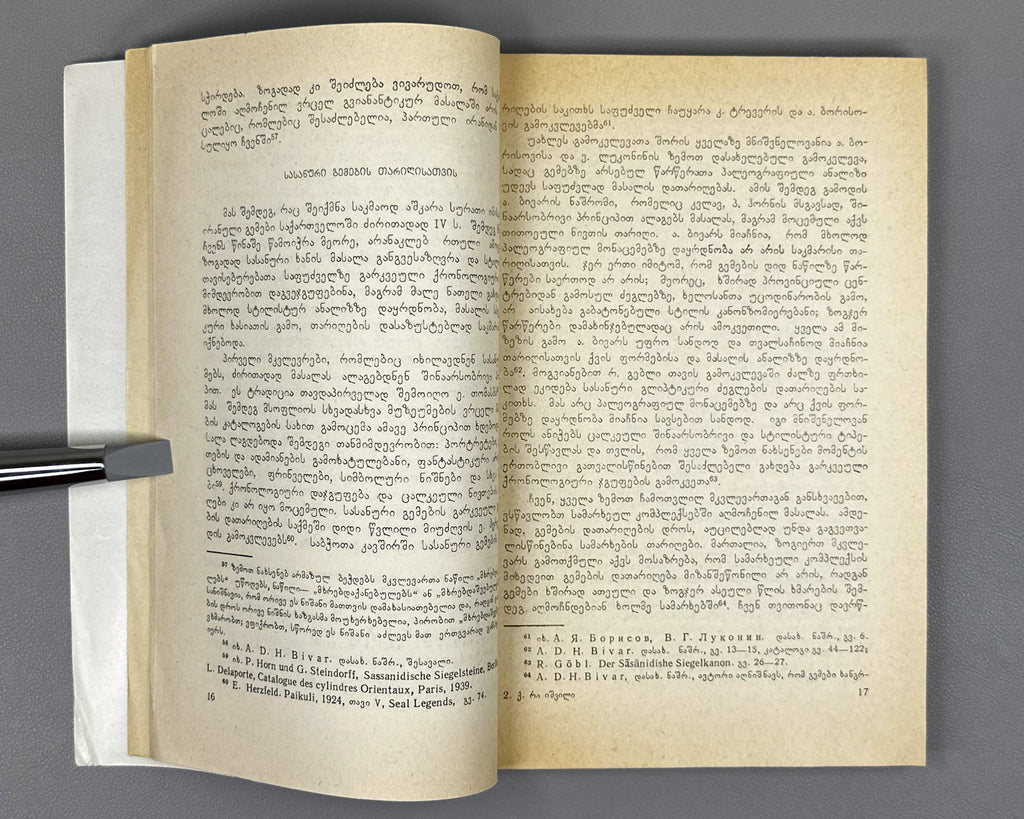 სჭირდება. ზოგადად კი შეიძლება ვივარაუდოთ, რომ
ლოში აღმოჩენილ ვრცელ გვიანანტიკურ მასალაში
ცალებიც, რომლებიც შესაძლებელია, პართული
სულიყო ჩვენში⁵⁷.
სასანური გემების თარიღისათვის
მას შემდეგ, რაც შეიქმნა საკმაოდ აშკარა სურათი
ირანული გემები საქართველოში ძირითადად IV ს. შემდეგ
ჩვენს წინაშე წამოიჭრა მეორე, არანაკლებ რთული
ზოგადად სასანური ხანის მასალა განგვესაზღვრა და
თავისებურებათა საფუძველზე გარკვეული ქრონოლოგიური
მიმდევრობით დაგვეჯგუფებინა, მაგრამ მალე ნათელი
მხოლოდ სტილისტურ ანალიზზე დაყრდნობა, მასალის
კური ხასიათის გამო, თარიღების დასაზუსტებლად
იქნებოდა.
პირველი მკვლევრები, რომლებიც იხილავდნენ
მებს, ძირითადად მასალას ალაგებდნენ შინაარსობრივი
პით. ეს ტრადიცია თავდაპირველად შემოიღო ე.
მას შემდეგ მსოფლიოს სხვადასხვა მუზეუმების ვრცელი
ბის კატალოგების სახით გამოცემა ამავე პრინციპით
სალა ლაგდებოდა შემდეგი თანმიმდევრობით: პორტრეტები,
თების და ადამიანების გამოხატულებანი, ფანტასტიკური
ცხოველები, ფრინველები, სიმბოლური ნიშნები და
ბი⁵⁹. ქრონოლოგიური დაჯგუფება და ცალკეული
ღები კი არ იყო მოცემული. სასანური გემების
ბის დათარიღების საქმეში დიდი წვლილი მიუძღვის ე.
დის გამოკვლევებს⁶⁰. საბჭოთა კავშირში სასანური გემების
⁵⁷ ზემოთ ნახსენებ არმაზულ ბეჭდებს მკვლევართა ნაწილი
ლებს“ უწოდებს, ნაწილი— „მხრებდაქანებულებს“ ან
სანიშნავია, რომ ორივე ეს ნიშანი მათთვის დამახასიათებელია და,
ბის დროს ორივე ნიშნის ხაზგასმა მოუხერხებელია, პირობით
ვხმარობთ; ვფიქრობთ, სწორედ ეს ნიშანი აძლევს მათ ერთგვარად
იერს.
⁵⁸ იხ. A. D. H. Bivar. დასახ. ნაშრ., შესავალი.
⁵⁹ იხ. P. Horn und G. Steindorff, Sassanidische Siegelsteine,
L. Delaporte, Catalogue des cylindres Orientaux, Paris, 1939.
⁶⁰ E. Herzfeld. Paikuli, 1924, თავი V, Seal Legends, გვ. 74.
16
რიღების საკითხს საფუძველი ჩაუყარა კ. ტრევერის და ა. ბორისო-
ვის გამოკვლევებმა⁶¹.
უახლეს გამოკვლევათა შორის ყველაზე მნიშვნელოვანია ა. ბო-
რისოვისა და ვ. ლუკონინის ზემოთ დასახელებული გამოკვლევა,
სადაც გემებზე არსებულ წარწერათა პალეოგრაფიული ანალიზი
უდევს საფუძვლად მასალის დათარიღებას. ამის შემდეგ გამოდის
ა. ბივარის ნაშრომი, რომელიც კვლავ, პ. ჰორნის მსგავსად, ში-
ნაარსობრივი პრინციპით ალაგებს მასალას, მაგრამ მოცემული აქვს
თითოეული ნივთის თარიღი. ა. ბივარს მიაჩნია, რომ მხოლოდ
პალეოგრაფიულ მონაცემებზე დაყრდნობა არ არის საკმარისი თა-
რიღისათვის. ჯერ ერთი იმიტომ, რომ გემების დიდ ნაწილზე წარ-
წერები საერთოდ არ არის; მეორეც, ხშირად პროვინციული ცენ-
ტრებიდან გამოსულ ძეგლებზე, ხელოსანთა უცოდინარობის გამო,
არ აისახება გაბატონებული სტილის კანონზომიერებანი; ზოგჯერ
წარწერები დამახინჯებულადაც არის ამოკვეთილი. ყველა ამ მი-
ზეზის გამო ა. ბივარს უფრო სანდოდ და თვალსაჩინოდ მიაჩნია
თარიღისათვის ქვის ფორმებისა და მასალის ანალიზზე დაყრდნო-
ბა⁶². მოგვიანებით რ. გებლი თავის გამოკვლევაში ძალზე ფრთხი-
ლად ეკიდება სასანური გლიპტიკური ძეგლების დათარიღების სა-
კითხს. მას არც პალეოგრაფიულ მონაცემებზე და არც ქვის ფორ-
მებზე დაყრდნობა მიაჩნია სავსებით სანდოდ. იგი მნიშვნელოვან
როლს ანიჭებს ცალკეული შინაარსობრივი და სტილისტური ტიპე-
ბის შესწავლას და თვლის, რომ ყველა ზემოთ ნახსენები მომენტის
ერთობლივი გათვალისწინებით შესაძლებელი გახდება გარკვეული
ქრონოლოგიური ჯგუფების გამოკვეთა⁶³.
ჩვენ, ყველა ზემოთ ჩამოთვლილ მკვლევართაგან განსხვავებით,
ვსწავლობთ სამარხეულ კომპლექსებში აღმოჩენილ მასალას. ამდე-
ნად, გემების დათარიღების დროს, აუცილებლად უნდა გაგვეთვა-
ლისწინებინა სამარხების თარიღები. მართალია, ზოგიერთ მკვლე-
ვარს გამოთქმული აქვს მოსაზრება, რომ სამარხეული კომპლექსის
მიხედვით გემების დათარიღება მიზანშეწონილი არ არის, რადგან
გემები ხშირად ათეული და ზოგჯერ ასეული წლის ხმარების შემ-
დეგ აღმოჩნდებიან ხოლმე სამარხებში⁶⁴. ჩვენ თვითონაც დავრწ-
⁶¹ იხ. А. Я. Борисов, В. Г. Луконин. დასახ. ნაშრ., გვ. 6.
⁶² A. D. H. Bivar. დასახ. ნაშრ., გვ. 13—15, კატალოგი გვ. 44—122;
⁶³ R. Göbl. Der Säsänidishe Siegelkanon. გვ. 26—27.
⁶⁴ A. D. H. Bivar, დასახ. ნაშრ., ავტორი აღნიშნავს, რომ გემები ხანგრ-
2. ქ. რა იშვილი
17